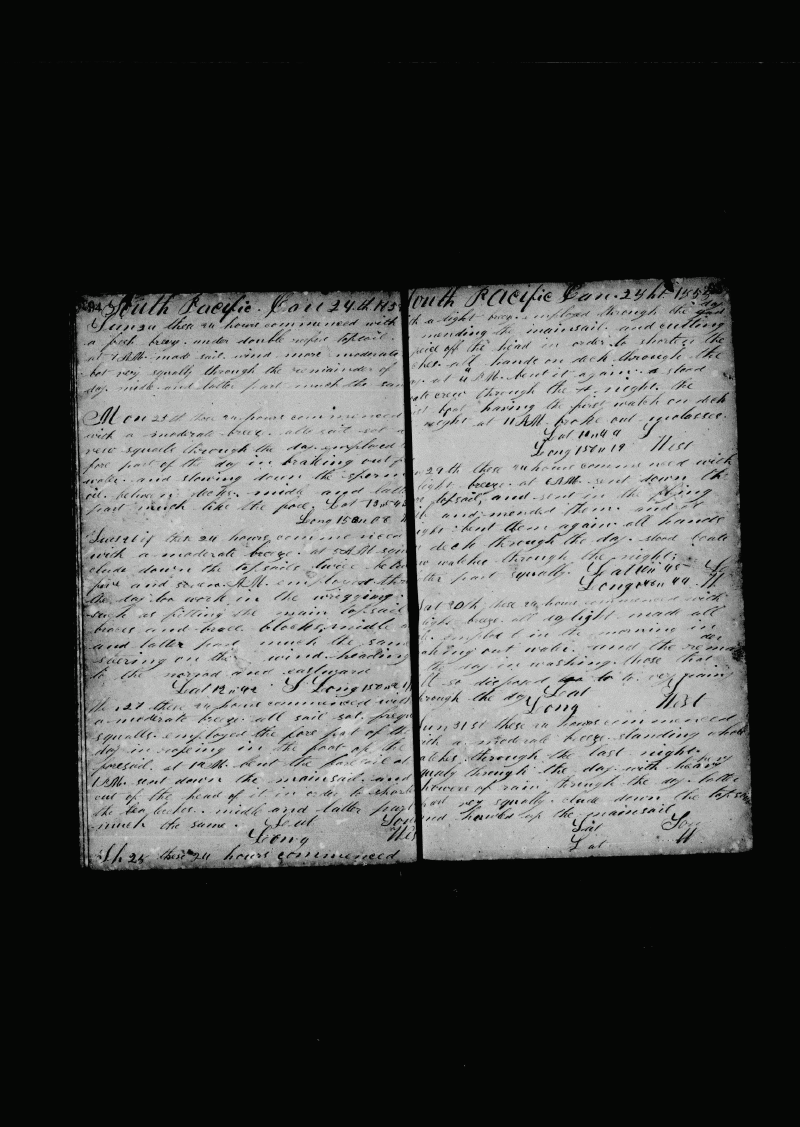 South Pacific. Jan 24th 185
Sun 24 these 24 hours commenced with
a fresh breeze. under double reefed topsail
at 7 AM. made sail. wind more moderate
but very squally through the remainder of
day. midle and latter part much the same
Mon 25th these 24 hours commenced
with a moderate breeze. all sail set
very squally through the day. employed
fore part of the day in braking out
water. and stowing down the sperm
oil. between decks. midle and latter
part much like the fore. Lat 13 " 54
Long 150 " 08
Tuesd 26 these 24 hours commenced
with a moderate breeze. at 5 AM squa
clude down the topsails twice betw
five and seven AM. employed thr
the day too work in the wrigging.
such as fitting the main topsail
braces and brace blocks. midle
and latter part much the same
steering on the wind heading
to the norord and eastward
Lat 12 " 42 S Long 150 " 21
the " 27 these 24 hours commenced with
a moderate breeze. all sail set.
squalls. employed the fore part of the
day in roping in the foot of the
foresail. at 10 AM. bent the foresail at
1 PM. sent down the mainsail. and
cut of the head of it in order to short
the leaches. midle and latter part
much the same. Lat Sou
Long Wes
Th 28 these 24 hours commenced
South Pacific Jan. 24ht 185
th a light breeze. employed through the day
mending the mainsail. and cutting
peice off the head in order to shorten the
ches. all hands on deck through the
at 4 PM. bent it again. a stood
ate crew through the night. the
boat having the first watch on deck
night at 11 AM. broke out molasses.
Lat 11 " 49 S
Long 150 " 19 West
29th these 24 hours commenced with
light breeze. at 6 AM. sent down the
topsail, and sent in the flying
jib and mended them. and at
night. bent them again. all hands
deck through the day. stood boats
w watches through the night.
tter part squally. Lat 10 " 45 So
Long 148 " 49. W
Sat 30th these 24 hours commenced with
light breeze. all sail light. made all
employed in the morning in
aking out water. and the remainder
the day in washing. those that
lt so disposed to to. very rainy
hrough the day Lat
Long West
Sun 31st these 24 hours commenced
ith a moderate breeze. standing whole
atches through the last night.
qually through the day. with heavy
howers of rain. through the day. latter
part very squally. clude down the topsails
and hauled up the mainsail
Lat Sou
Lat W